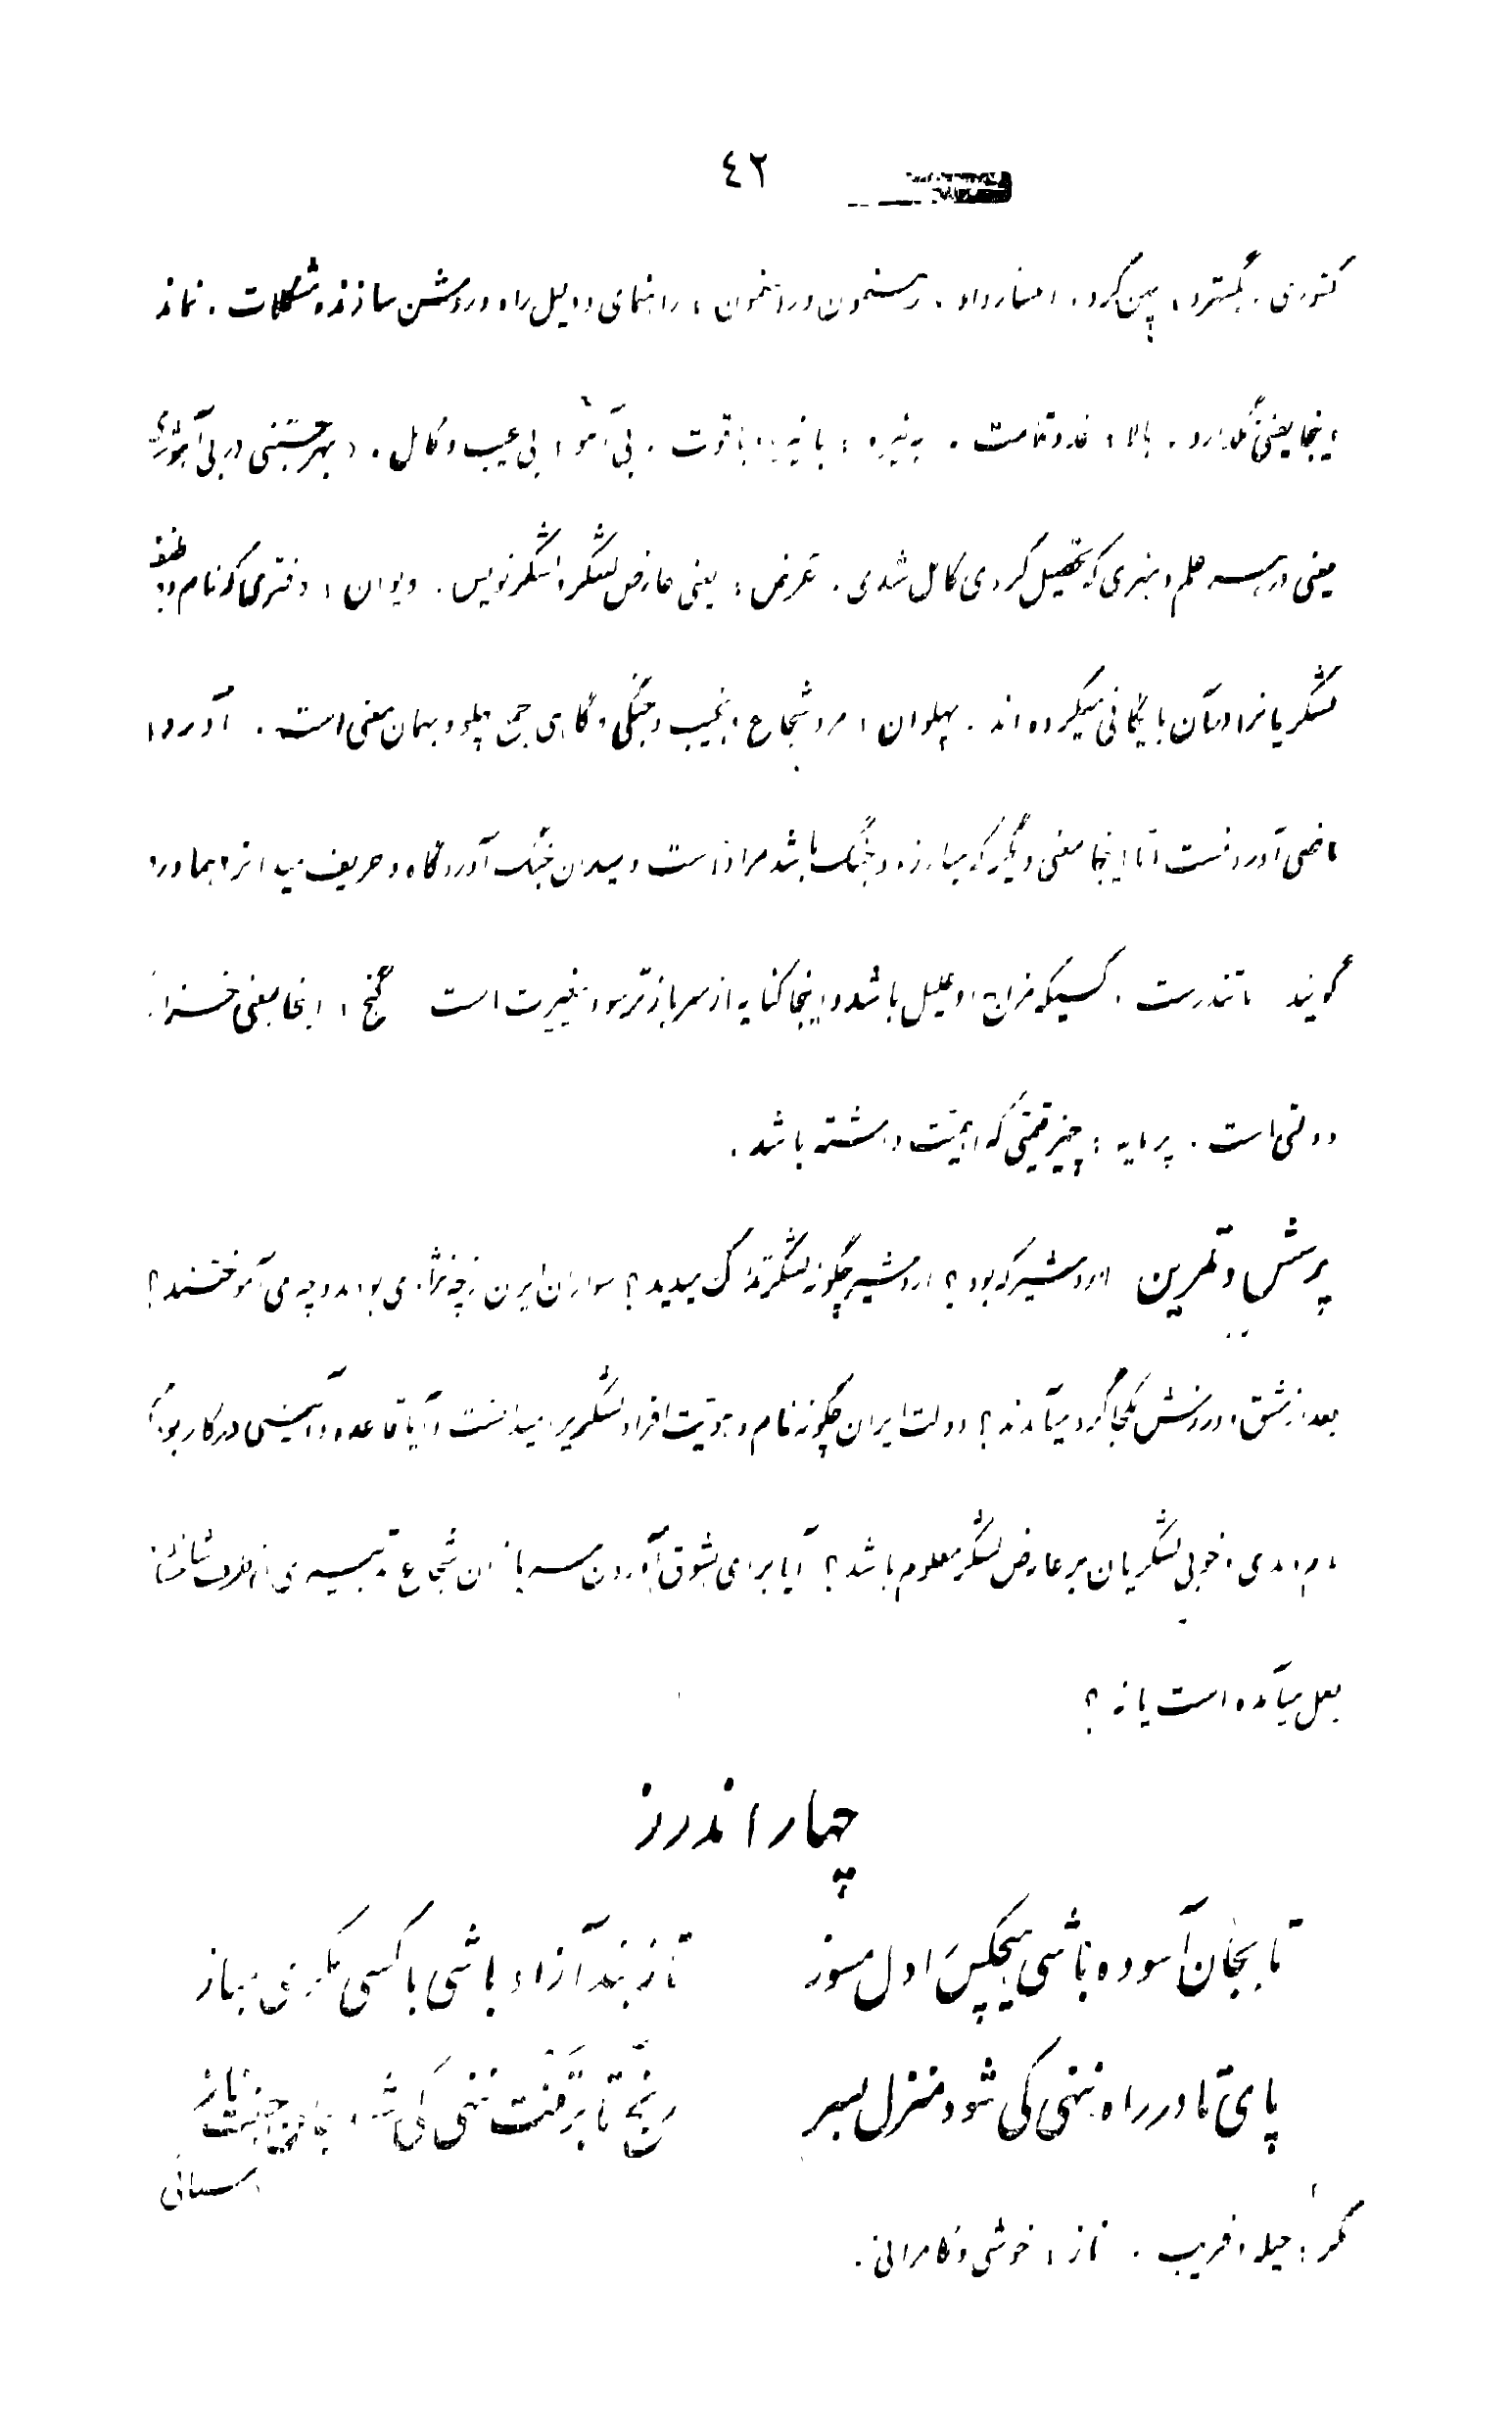 ٤٢
کشوری . بگسترد ، پهن کرد ، انتشار داد . رهنمون و رانمون ، راهنمای و دلیل راه و روشن سازنده مشکلات . نماند
اینجا یعنی نگذارد . بالا ، قد و قامت . به نیرو ، با نیرو ، با قوت . بی آهو ، بی عیب و کامل . بهر جستنی در بی آهو شدی
یعنی در هر علم و هنری که تحصیل کردی کامل شدی . عرض ، یعنی عارض لشگر و لشگرنویس . دیوان ، دفتری که نام و
لشگریانرا در آن بایگانی میکرده اند . پهلوان ، مرد شجاع و نجیب و جنگی و گاهی جمع پهلو و بهمان معنی است . آورد ،
ماضی آوردنست اما اینجا معنی دیگر که مبارزه و جنگ باشد مراد است و میدان جنگ آوردگاه و حریف میدانرا هماورد
گویند ناتندرست ، کسیکه مزاج او علیل باشد و اینجا کنایه از سرباز ترسو و بیغیرت است گنج ، اینجا بمعنی خزانه
دولتی است . پرمایه ، چیز قیمتی که اهمیت داشته باشد .
پرسش و تمرین اردشیر که بود ؟ اردشیر چگونه لشگر تدارک میدید ؟ سواران ایران از چه نژادی بودند و چه می آموختند ؟
بعد از مشق و ورزش بکجا گرد میآمدند ؟ دولت ایران چگونه نام و هویت افراد لشگر را میدانست و آیا قاعده و آئینی در کار بود که
بدی و خوبی لشگریان بر عارض لشگر معلوم باشد ؟ آیا برای بشوق آوردن سربازان شجاع تدبیری از طرف شاهنشاه
بعمل میآمده است یا نه ؟
چهار اندرز
تا بجان آسوده باشی هیچکس را دل مسوز
تا ز بند آزاد باشی با کسی مکری مباز
پای تا در راه ننهی کی شود منزل بسر
رنج تا بر تنت ننهی کی شود جان جفت ناز
سنائی
مکر ، حیله و فریب . ناز ، خوشی و کامرانی .